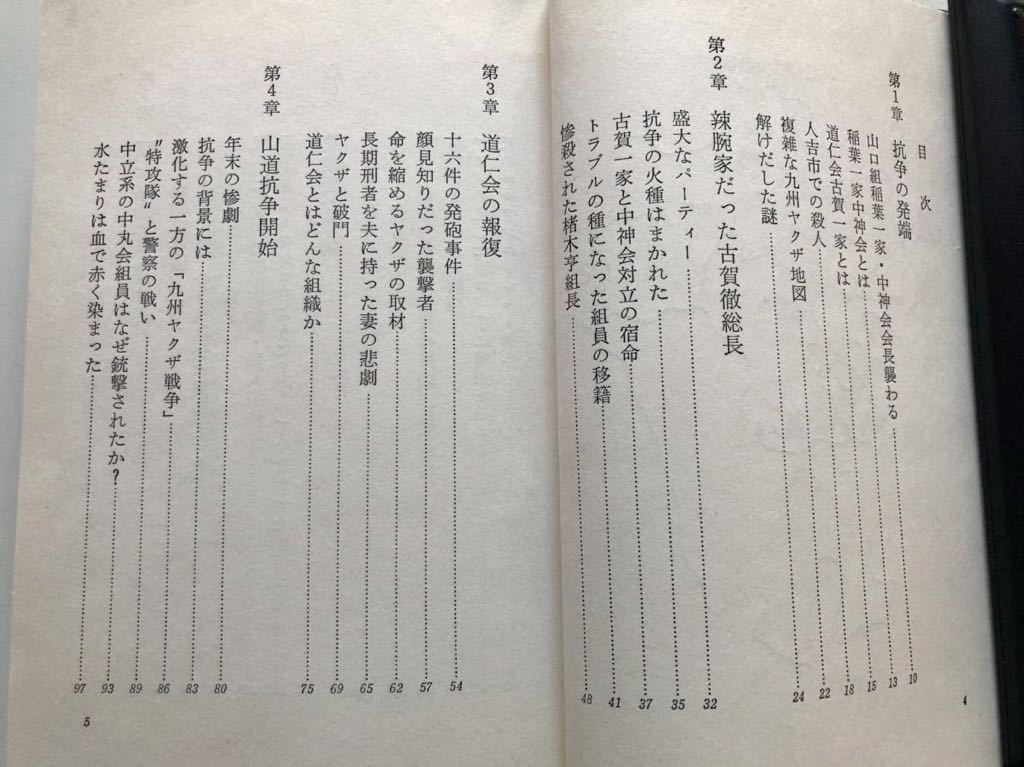 目次
第1章 抗争の発端
山口組稲葉一家・中神会会長襲わる……10
稲葉一家中神会とは……13
道仁会古賀一家とは……15
人吉市での殺人……18
複雑な九州ヤクザ地図……22
解けだした謎……24
第2章 辣腕家だった古賀徹総長
盛大なパーティー……32
抗争の火種はまかれた……35
古賀一家と中神会対立の宿命……37
トラブルの種になった組員の移籍……41
惨殺された楮木亨組長……48
4
第3章 道仁会の報復
十六件の発砲事件……54
顔見知りだった襲撃者……57
命を縮めるヤクザの取材……62
長期刑者を夫に持った妻の悲劇……65
ヤクザと破門……69
道仁会とはどんな組織か……75
第4章 山道抗争開始
年末の惨劇……80
抗争の背景には……83
激化する一方の「九州ヤクザ戦争」……86
〝特攻隊〟と警察の戦い……89
中立系の中丸会組員はなぜ銃撃されたか?……93
水たまりは血で赤く染まった……97
5